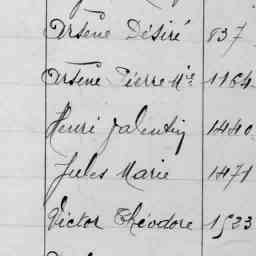 Arsène Désiré 837
Arsène Pierre Mie 1164
Henri Valentin 1440
Jules Marie 1471
Victor Théodore 1523